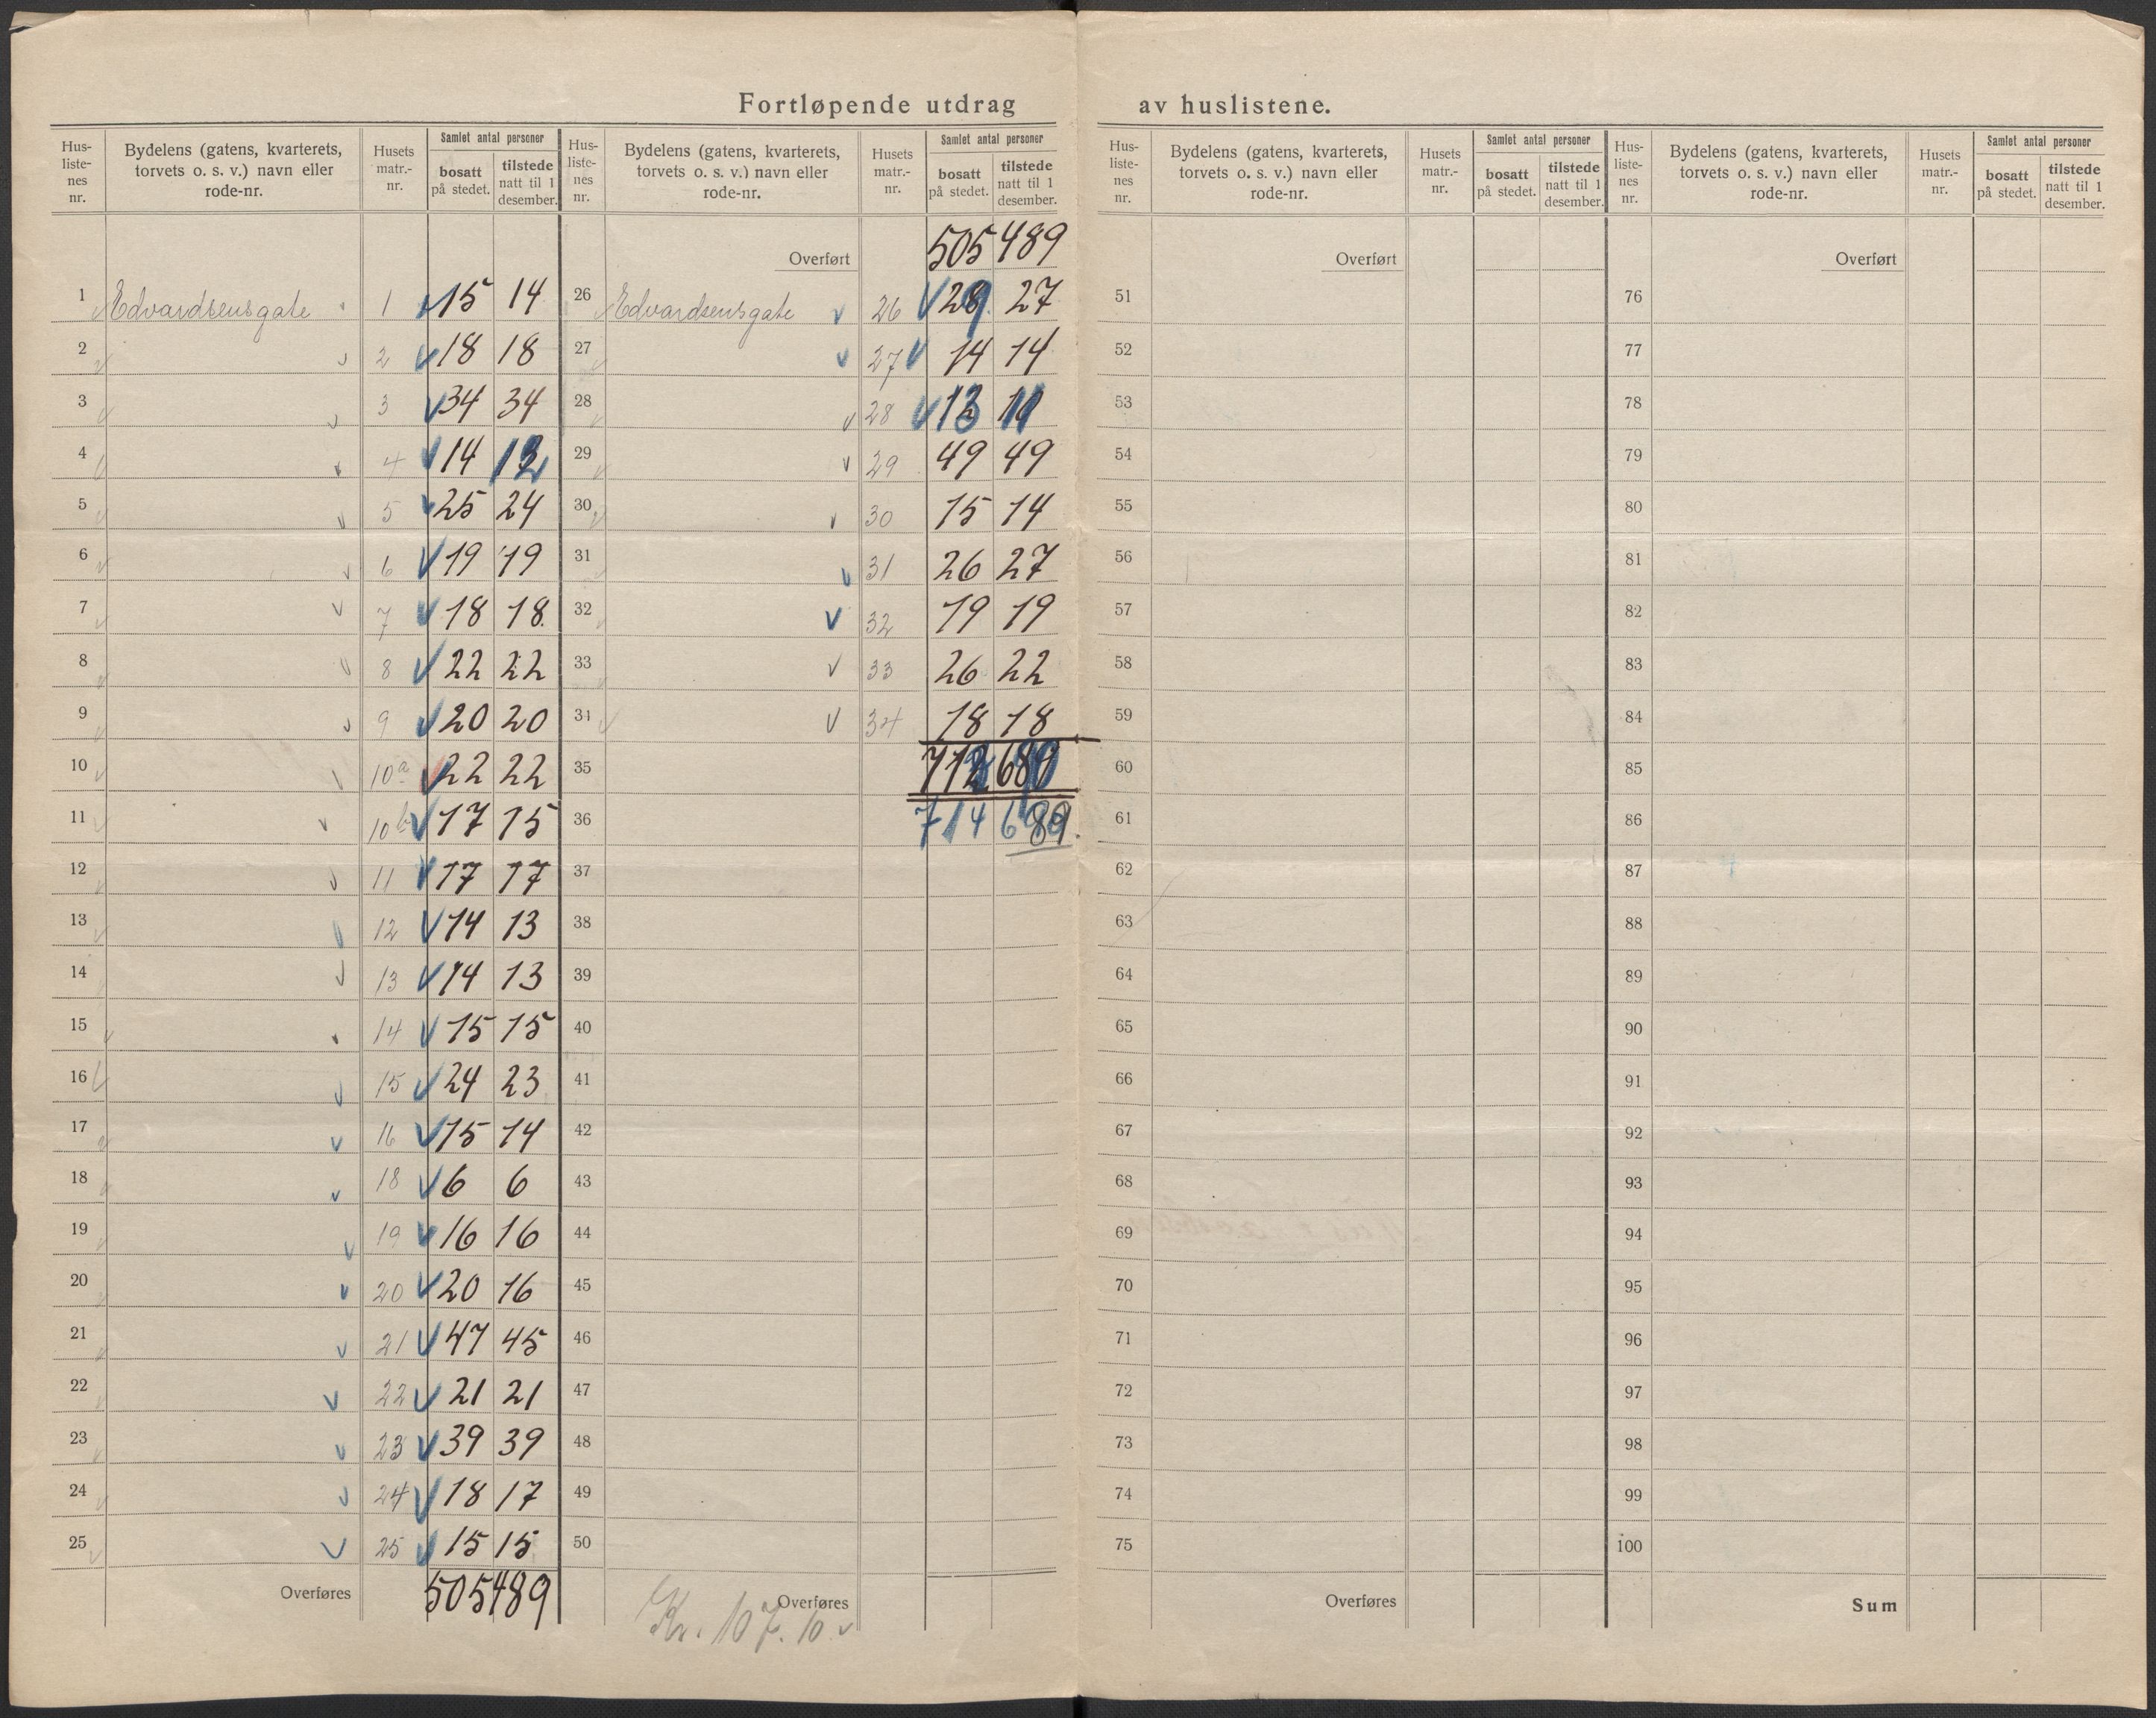 Fortløpende utdrag av huslistene.
Hus- liste- nes nr. | Bydelens (gatens, kvarterets, torvets o. s. v.) navn eller rode-nr. | Husets matr.- nr. | Samlet antal personer | bosatt på stedet. | tilstede natt til 1 desember.
1 Edvardsensgate 1 15 14
2 2 18 18
3 3 34 34
4 4 14 12
5 5 25 24
6 6 19 19
7 7 18 18
8 8 22 22
9 9 20 20
10 10a 22 22
11 10b 17 15
12 11 17 17
13 12 14 13
14 13 14 13
15 14 15 15
16 15 24 23
17 16 15 14
18 18 6 6
19 19 16 16
20 20 20 16
21 21 47 45
22 22 21 21
23 23 39 39
24 24 18 17
25 25 15 15
Overføres 505 489
Hus- liste- nes nr. | Bydelens (gatens, kvarterets, torvets o. s. v.) navn eller rode-nr. | Husets matr.- nr. | Samlet antal personer | bosatt på stedet. | tilstede natt til 1 desember.
Overført 505 489
26 Edvardsensgate 26 29 27
27 27 14 14
28 28 13 11
29 29 49 49
30 30 15 14
31 31 26 27
32 32 19 19
33 33 26 22
34 34 18 18
35 712 689
36 714 689
37
38
39
40
41
42
43
44
45
46
47
48
49
50
Overføres
Kr. 107.10
Hus- liste- nes nr. | Bydelens (gatens, kvarterets, torvets o. s. v.) navn eller rode-nr. | Husets matr.- nr. | Samlet antal personer | bosatt på stedet. | tilstede natt til 1 desember.
Overført
51
52
53
54
55
56
57
58
59
60
61
62
63
64
65
66
67
68
69
70
71
72
73
74
75
Overføres
Hus- liste- nes nr. | Bydelens (gatens, kvarterets, torvets o. s. v.) navn eller rode-nr. | Husets matr.- nr. | Samlet antal personer | bosatt på stedet. | tilstede natt til 1 desember.
Overført
76
77
78
79
80
81
82
83
84
85
86
87
88
89
90
91
92
93
94
95
96
97
98
99
100
Sum